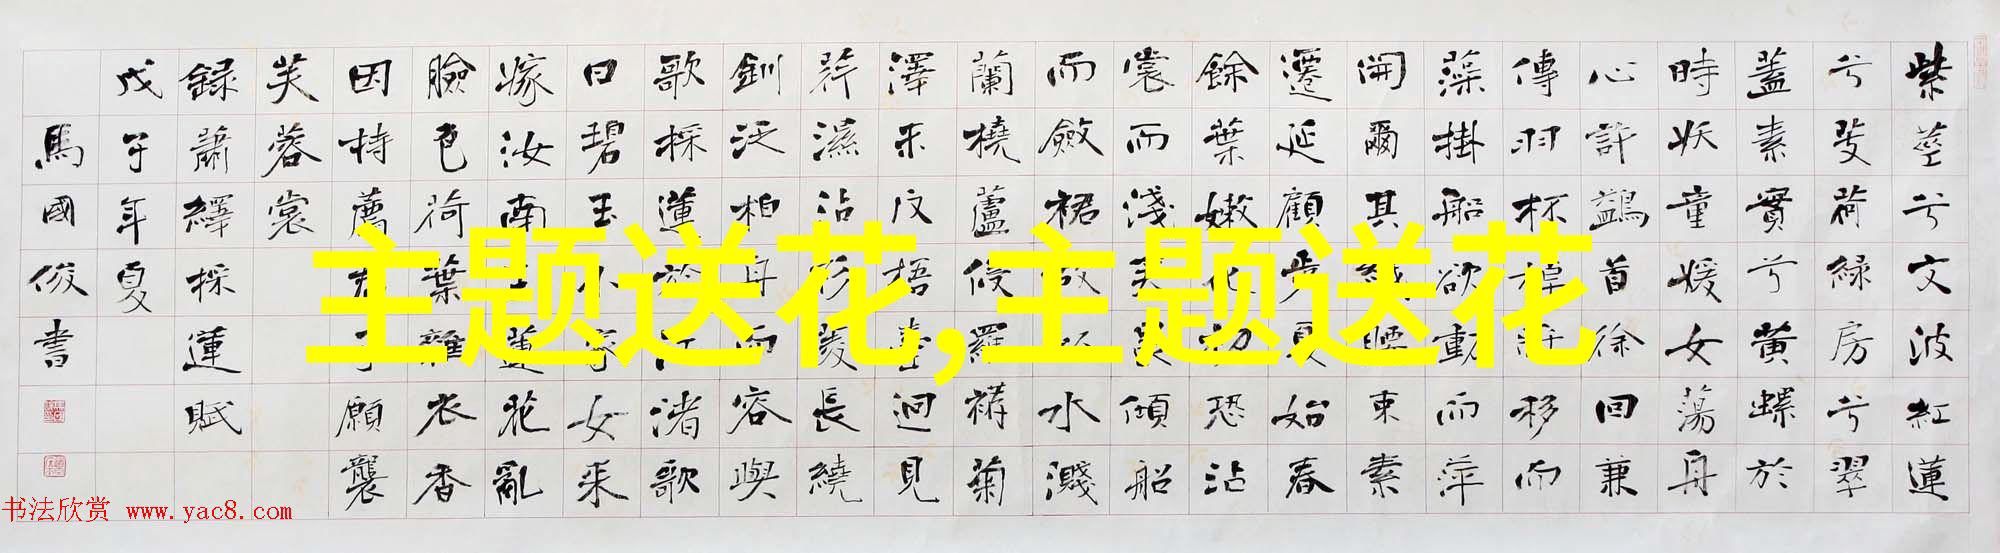 紫莖兮文波紅蓮
兮芰荷綠房兮翠
蓋素實兮黃螺於
時妖童媛女蕩舟
心許鷁首徐回兼
傳羽杯棹將移而
藻掛船欲動而萍
開爾其纖腰束素
遷延顧步夏始春
餘葉嫩花初恐沾
裳而淺笑畏傾船
而斂裾故以水濺
蘭橈蘆侵羅褠菊
澤未反梧臺迥見
荇濕沾衫菱長繞
釧泛柏舟而容與
歌採蓮於江渚歌
曰碧玉小家女來
嫁汝南王蓮花亂
臉色荷葉雜衣香
因持薦君子願襲
芙蓉裳
錄蕭繹採蓮賦
戊子年夏
馬國俊書
主题送花,主题送花
书法欣赏 www.yac8.com